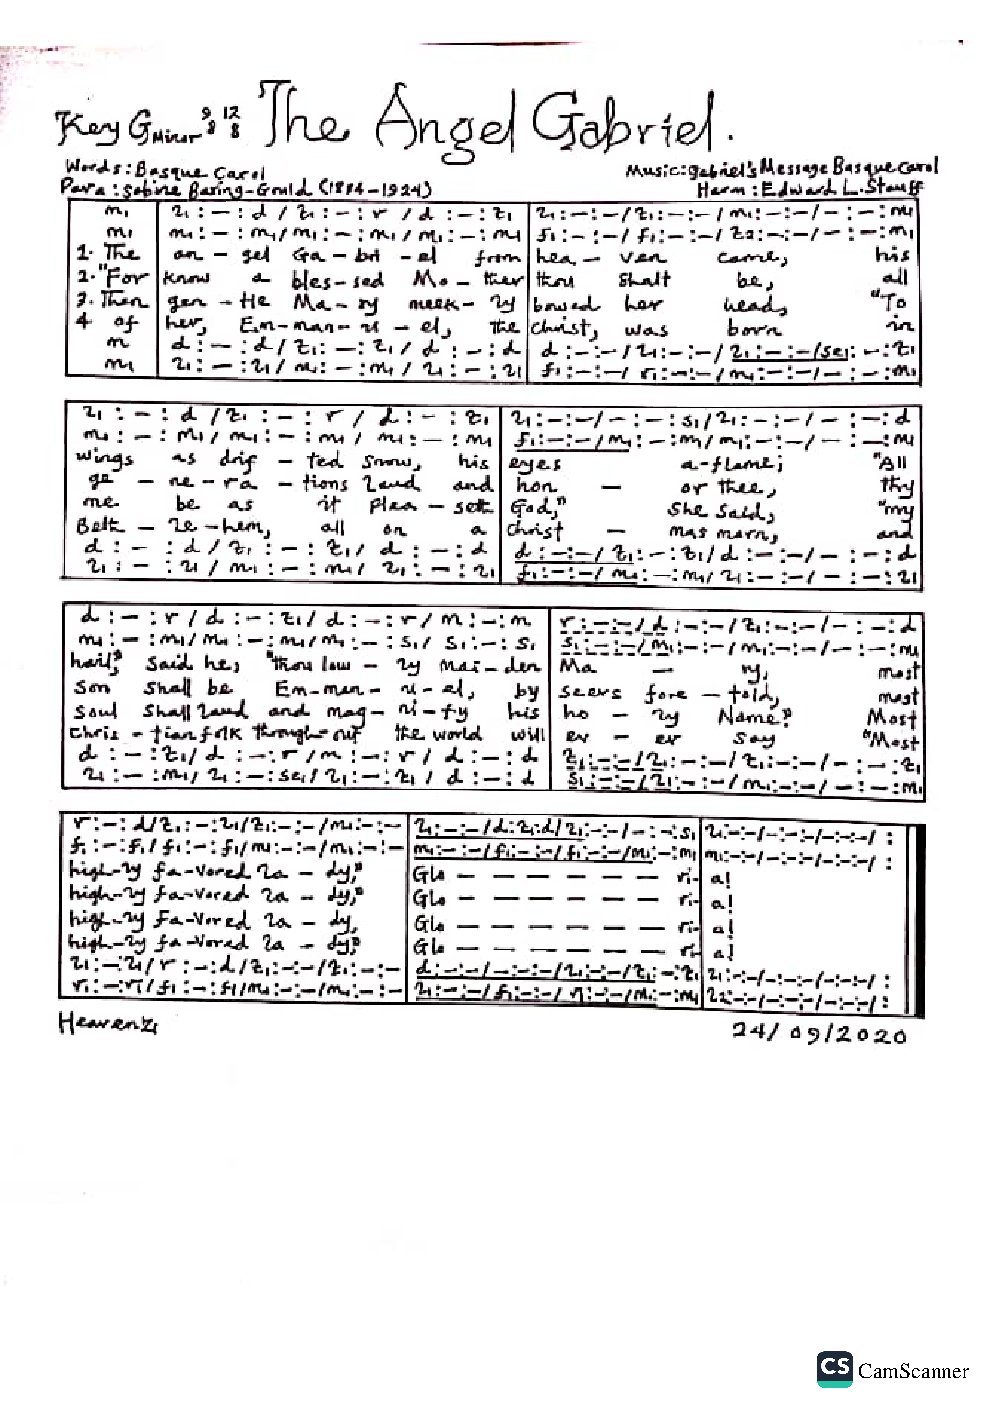 Key G Minor 9/8 12/8 The Angel Gabriel.
Words: Basque Carol Music: Gabriel's Message Basque Carol
Para: Sabine Baring-Gould (1884-1924) Harm: Edward L. Stauff
m₁ l₁ : – : d / l₁ : – : r / d : – : t₁ l₁ : – : – / l₁ : – : – / m₁ : – : – / – : – : m₁
m₁ m₁ : – : m₁ / m₁ : – : m₁ / m₁ : – : m₁ f₁ : – : – / f₁ : – : – / – : – : m₁
1. The an – gel Ga – bri – el from hea – ven came, his
2. "For know a bles – sed Mo – ther thou shalt be, all
3. Then gen – tle Ma – ry meek – ly bowed her head, "To
4 of her, Em – man – u – el, the Christ, was born in
m d : – : d / t₁ : – : t₁ / d : – : d d : – : – / l₁ : – : – / l₁ : – : – / se₁ : – : t₁
m₁ l₁ : – : l₁ / m₁ : – : m₁ / l₁ : – : l₁ f₁ : – : – / r₁ : – : – / m₁ : – : – / – : – : m₁
l₁ : – : d / t₁ : – : r / d : – : t₁ l₁ : – : – / – : – : s₁ / l₁ : – : – / – : – : d
m₁ : – : m₁ / m₁ : – : m₁ / m₁ : – : m₁ f₁ : – : – / m₁ : – : m₁ / m₁ : – : – / – : – : m₁
wings as drif – ted snow, his eyes a-flame; "All
ge – ne – ra – tions laud and hon – or thee, thy
me be as it plea – seth God," she said, "my
Beth – le – hem, all on a Christ – mas morn, and
d : – : d / t₁ : – : t₁ / d : – : d d : – : – / t₁ : – : t₁ / d : – : – / – : – : d
l₁ : – : l₁ / m₁ : – : m₁ / l₁ : – : l₁ f₁ : – : – / m₁ : – : m₁ / l₁ : – : – / – : – : l₁
d : – : r / d : – : t₁ / d : – : r / m : – : m r : – : – / d : – : – / t₁ : – : – / – : – : d
m₁ : – : m₁ / m₁ : – : m₁ / m₁ : – : s₁ / s₁ : – : s₁ s₁ : – : – / m₁ : – : – / m₁ : – : – / – : – : m₁
hail," said he, "thou low – ly mai – den Ma – ry, most
Son shall be Em – man – u – el, by seers fore – told, most
soul shall laud and mag – ni – fy his ho – ly Name." Most
Chris – tian folk through – out the world will ev – er say "Most
d : – : t₁ / d : – : r / m : – : r / d : – : d t₁ : – : – / l₁ : – : – / t₁ : – : – / – : – : t₁
l₁ : – : m₁ / l₁ : – : se₁ / l₁ : – : t₁ / d : – : d s₁ : – : – / l₁ : – : – / m₁ : – : – / – : – : m₁
r : – : d / t₁ : – : l₁ / t₁ : – : – / m₁ : – : – l₁ : – : – / d : t₁ : d / l₁ : – : – / – : – : s₁ l₁ : – : – / – : – : – / – : – : – / :
f₁ : – : f₁ / f₁ : – : f₁ / m₁ : – : – / m₁ : – : – m₁ : – : – / f₁ : – : – / f₁ : – : – / m₁ : – : m₁ m₁ : – : – / – : – : – / – : – : – / :
high – ly fa – vored la – dy," Glo – – – – – – ri – a!
high – ly fa – vored la – dy," Glo – – – – – – ri – a!
high – ly fa – vored la – dy, Glo – – – – – – ri – a!
high – ly fa – vored la – dy," Glo – – – – – – ri – a!
l₁ : – : l₁ / r : – : d / t₁ : – : – / t₁ : – : – d : – : – / – : – : – / l₁ : – : – / t₁ : – : t₁ l₁ : – : – / – : – : – / – : – : – / :
r₁ : – : r₁ / f₁ : – : f₁ / m₁ : – : – / m₁ : – : – l₁ : – : – / f₁ : – : – / r₁ : – : – / m₁ : – : m₁ l₂ : – : – / – : – : – / – : – : – / :
24/09/2020
CS CamScanner